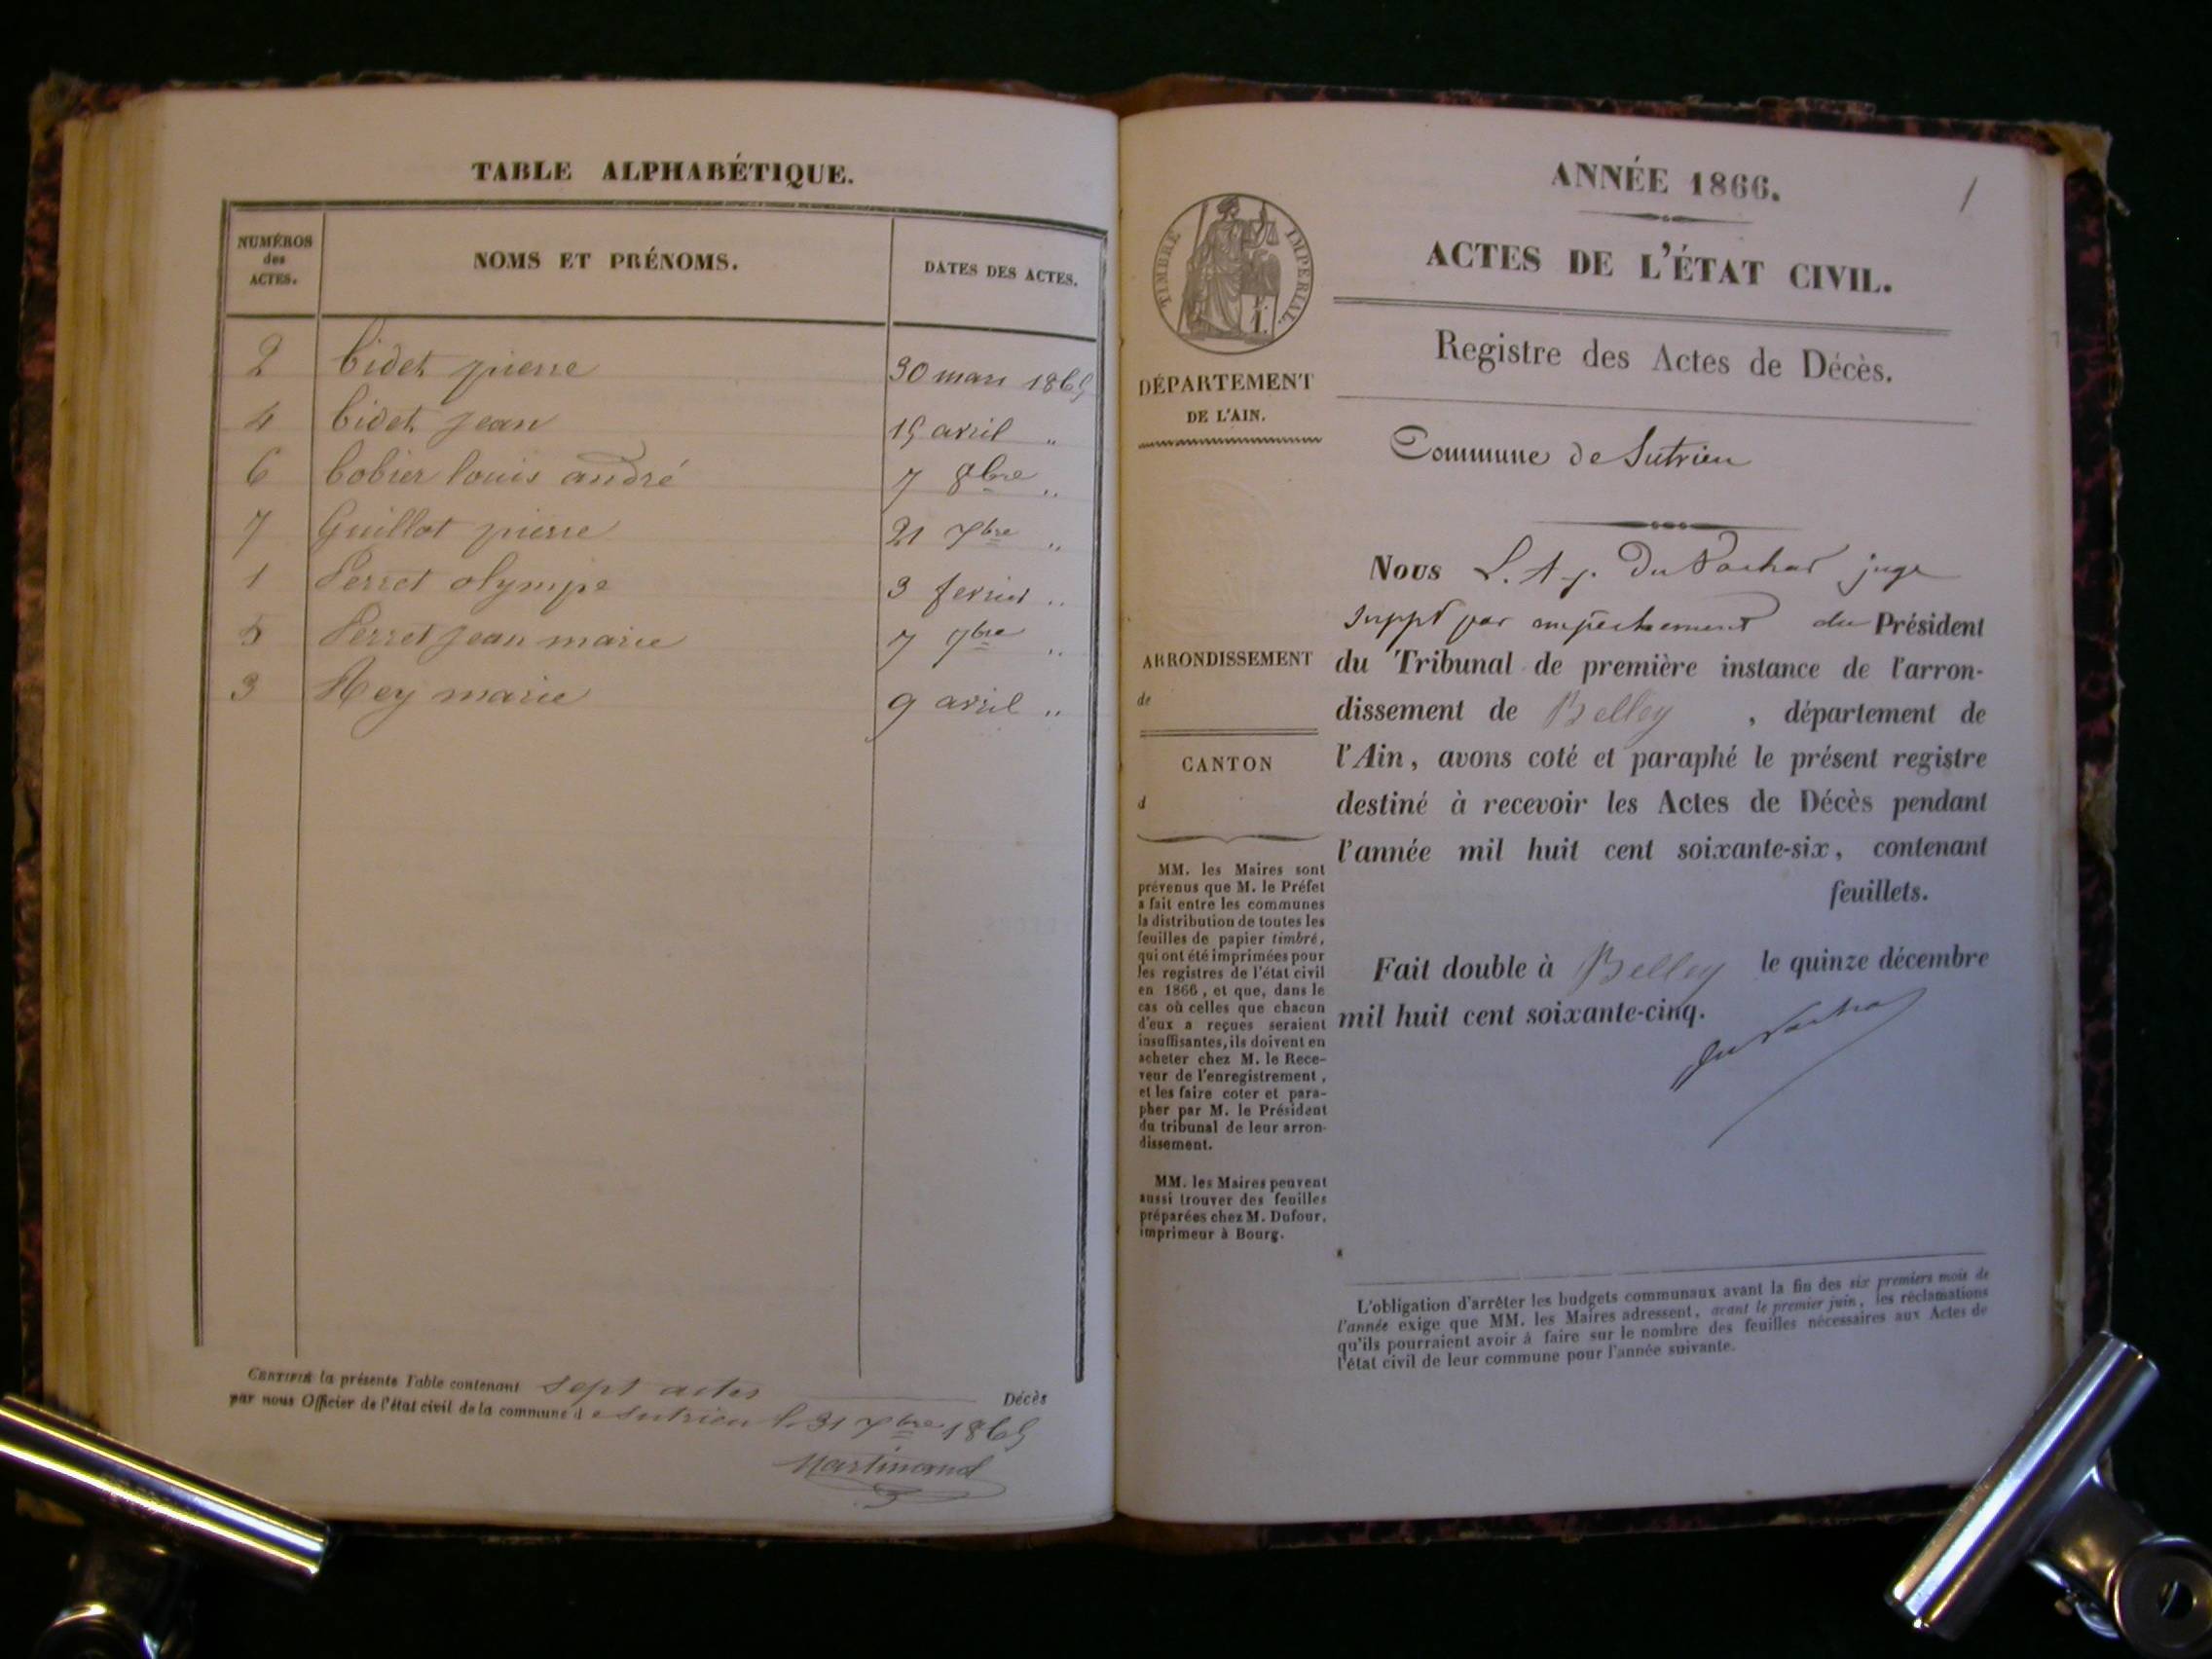 TABLE ALPHABÉTIQUE.
NUMÉROS des ACTES.
NOMS ET PRÉNOMS.
DATES DES ACTES.
2 Cidet pierre 30 mars 1865
4 Cidet jean 15 avril "
6 Cobier louis andré 7 8bre "
7 Guillot pierre 21 xbre "
1 Perret olympe 3 fevrier "
5 Perret jean marie 7 7bre "
3 Rey marie 9 avril "
CERTIFIÉ la présente Table contenant sept actes Décès
par nous Officier de l'état civil de la commune de Sutrieu le 31 xbre 1865
Martinand
1
ANNÉE 1866.
ACTES DE L'ÉTAT CIVIL.
Registre des Actes de Décès.
Commune de Sutrieu
TIMBRE IMPÉRIAL.
DÉPARTEMENT
DE L'AIN.
ARRONDISSEMENT
de
CANTON
d
MM. les Maires sont
prévenus que M. le Préfet
a fait entre les communes
la distribution de toutes les
feuilles de papier timbré,
qui ont été imprimées pour
les registres de l'état civil
en 1866, et que, dans le
cas où celles que chacun
d'eux a reçues seraient
insuffisantes, ils doivent en
acheter chez M. le Rece-
veur de l'enregistrement,
et les faire coter et para-
pher par M. le Président
du tribunal de leur arron-
dissement.
MM. les Maires peuvent
aussi trouver des feuilles
préparées chez M. Dufour,
imprimeur à Bourg.
Nous L. A. juge
suppt par empêchement du Président
du Tribunal de première instance de l'arron-
dissement de Belley, département de
l'Ain, avons coté et paraphé le présent registre
destiné à recevoir les Actes de Décès pendant
l'année mil huit cent soixante-six, contenant
feuillets.
Fait double à Belley le quinze décembre
mil huit cent soixante-cinq.
L'obligation d'arrêter les budgets communaux avant la fin des six premiers mois de
l'année exige que MM. les Maires adressent, avant le premier juin, les réclamations
qu'ils pourraient avoir à faire sur le nombre des feuilles nécessaires aux Actes de
l'état civil de leur commune pour l'année suivante.